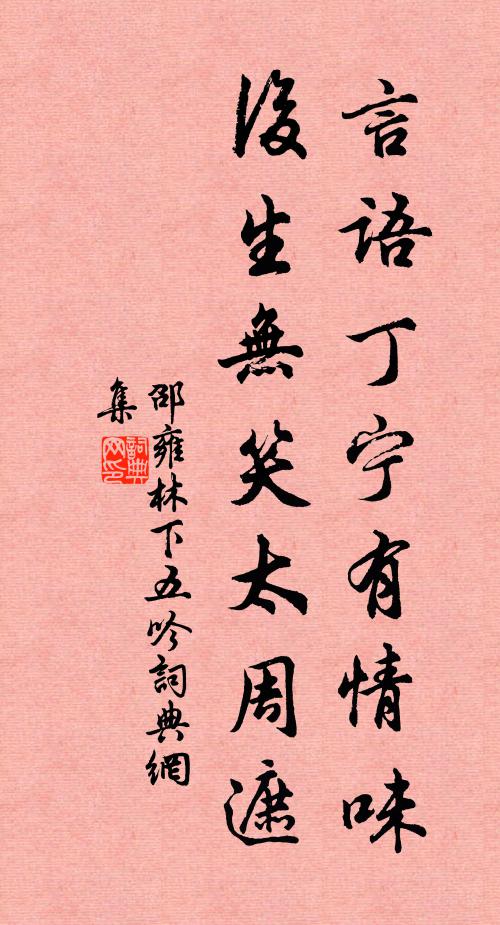 言語丁宁有情味
後生無笑太周遮
邵雍林下五吟詞典網
集
詞典網印